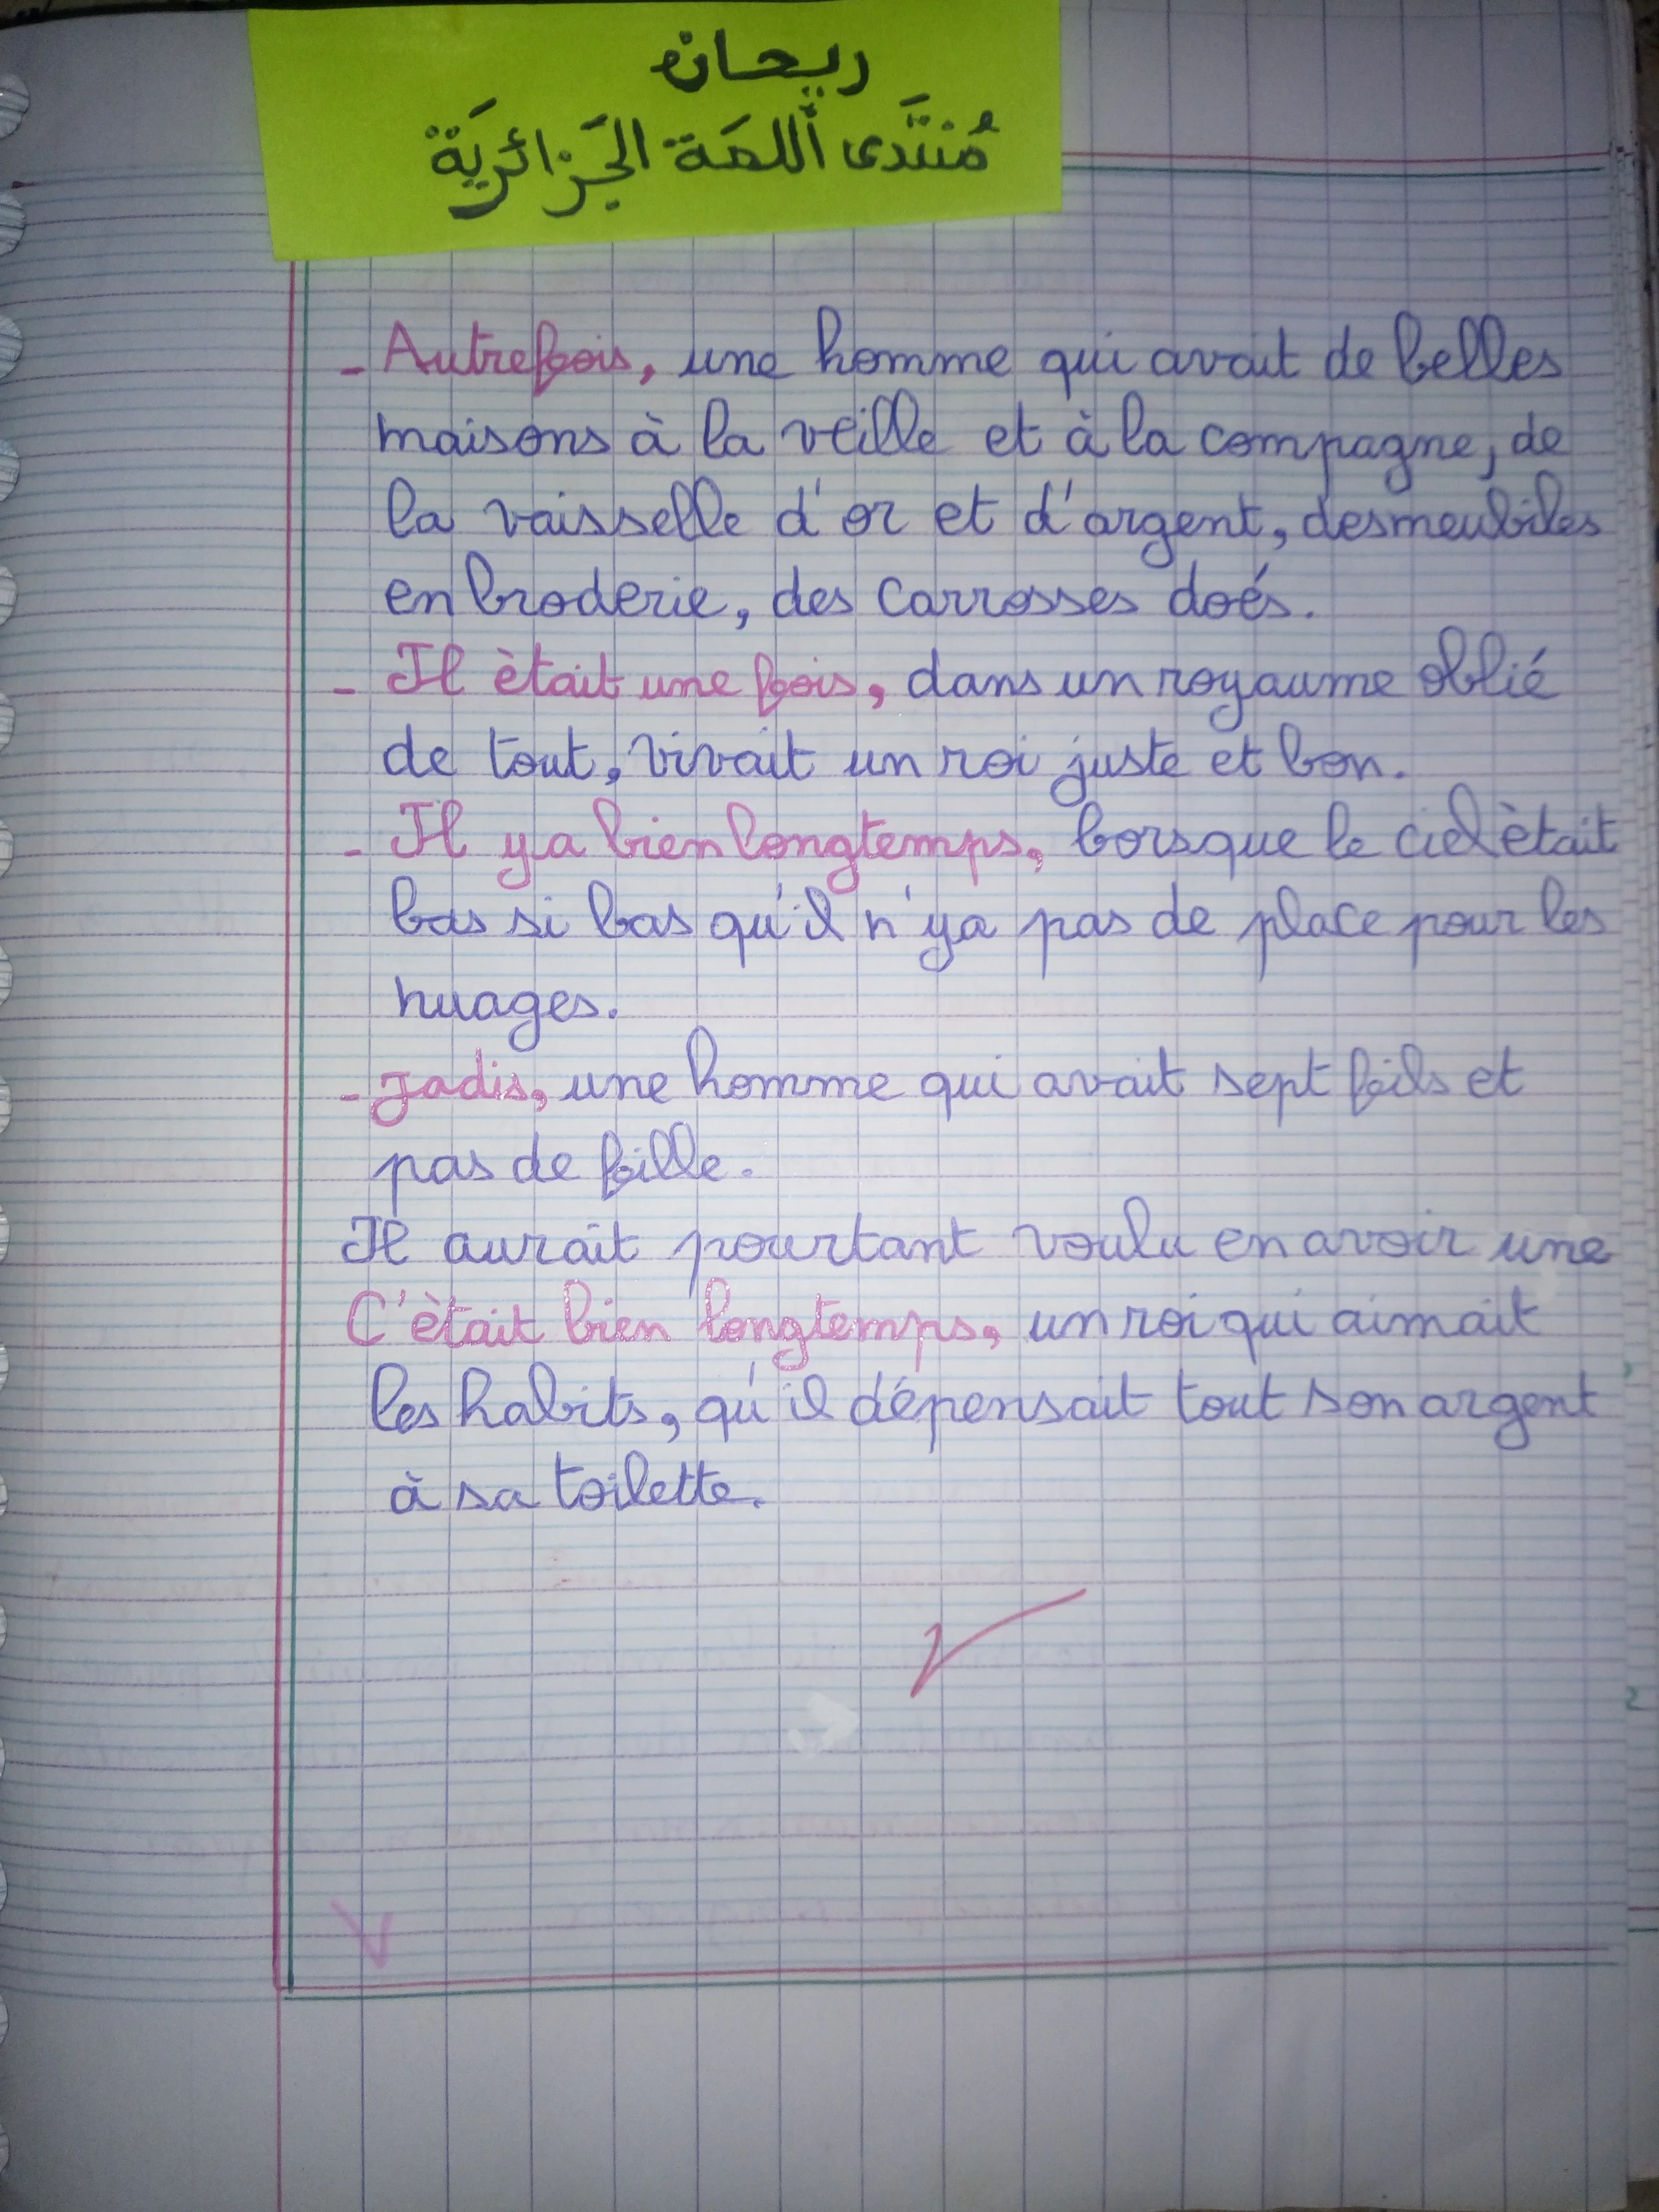 ريحان
مُنتَدى اللمَة الجَزائريَة
- Autrefois, une homme qui avait de belles
maisons à la veille et à la compagne, de
la vaisselle d'or et d'argent, desmeubiles
en broderie, des carrosses doés.
- Il ètait une fois, dans un royaume oblié
de tout, vivait un roi juste et bon.
- Il ya bien longtemps, lorsque le ciel ètait
bas si bas qu'il n'ya pas de place pour les
nuages.
- Jadis, une homme qui avait sept fils et
pas de fille.
Il aurait pourtant voulu en avoir une
C'ètait bien longtemps, un roi qui aimait
les habits, qu'il dépensait tout son argent
à sa toilette.